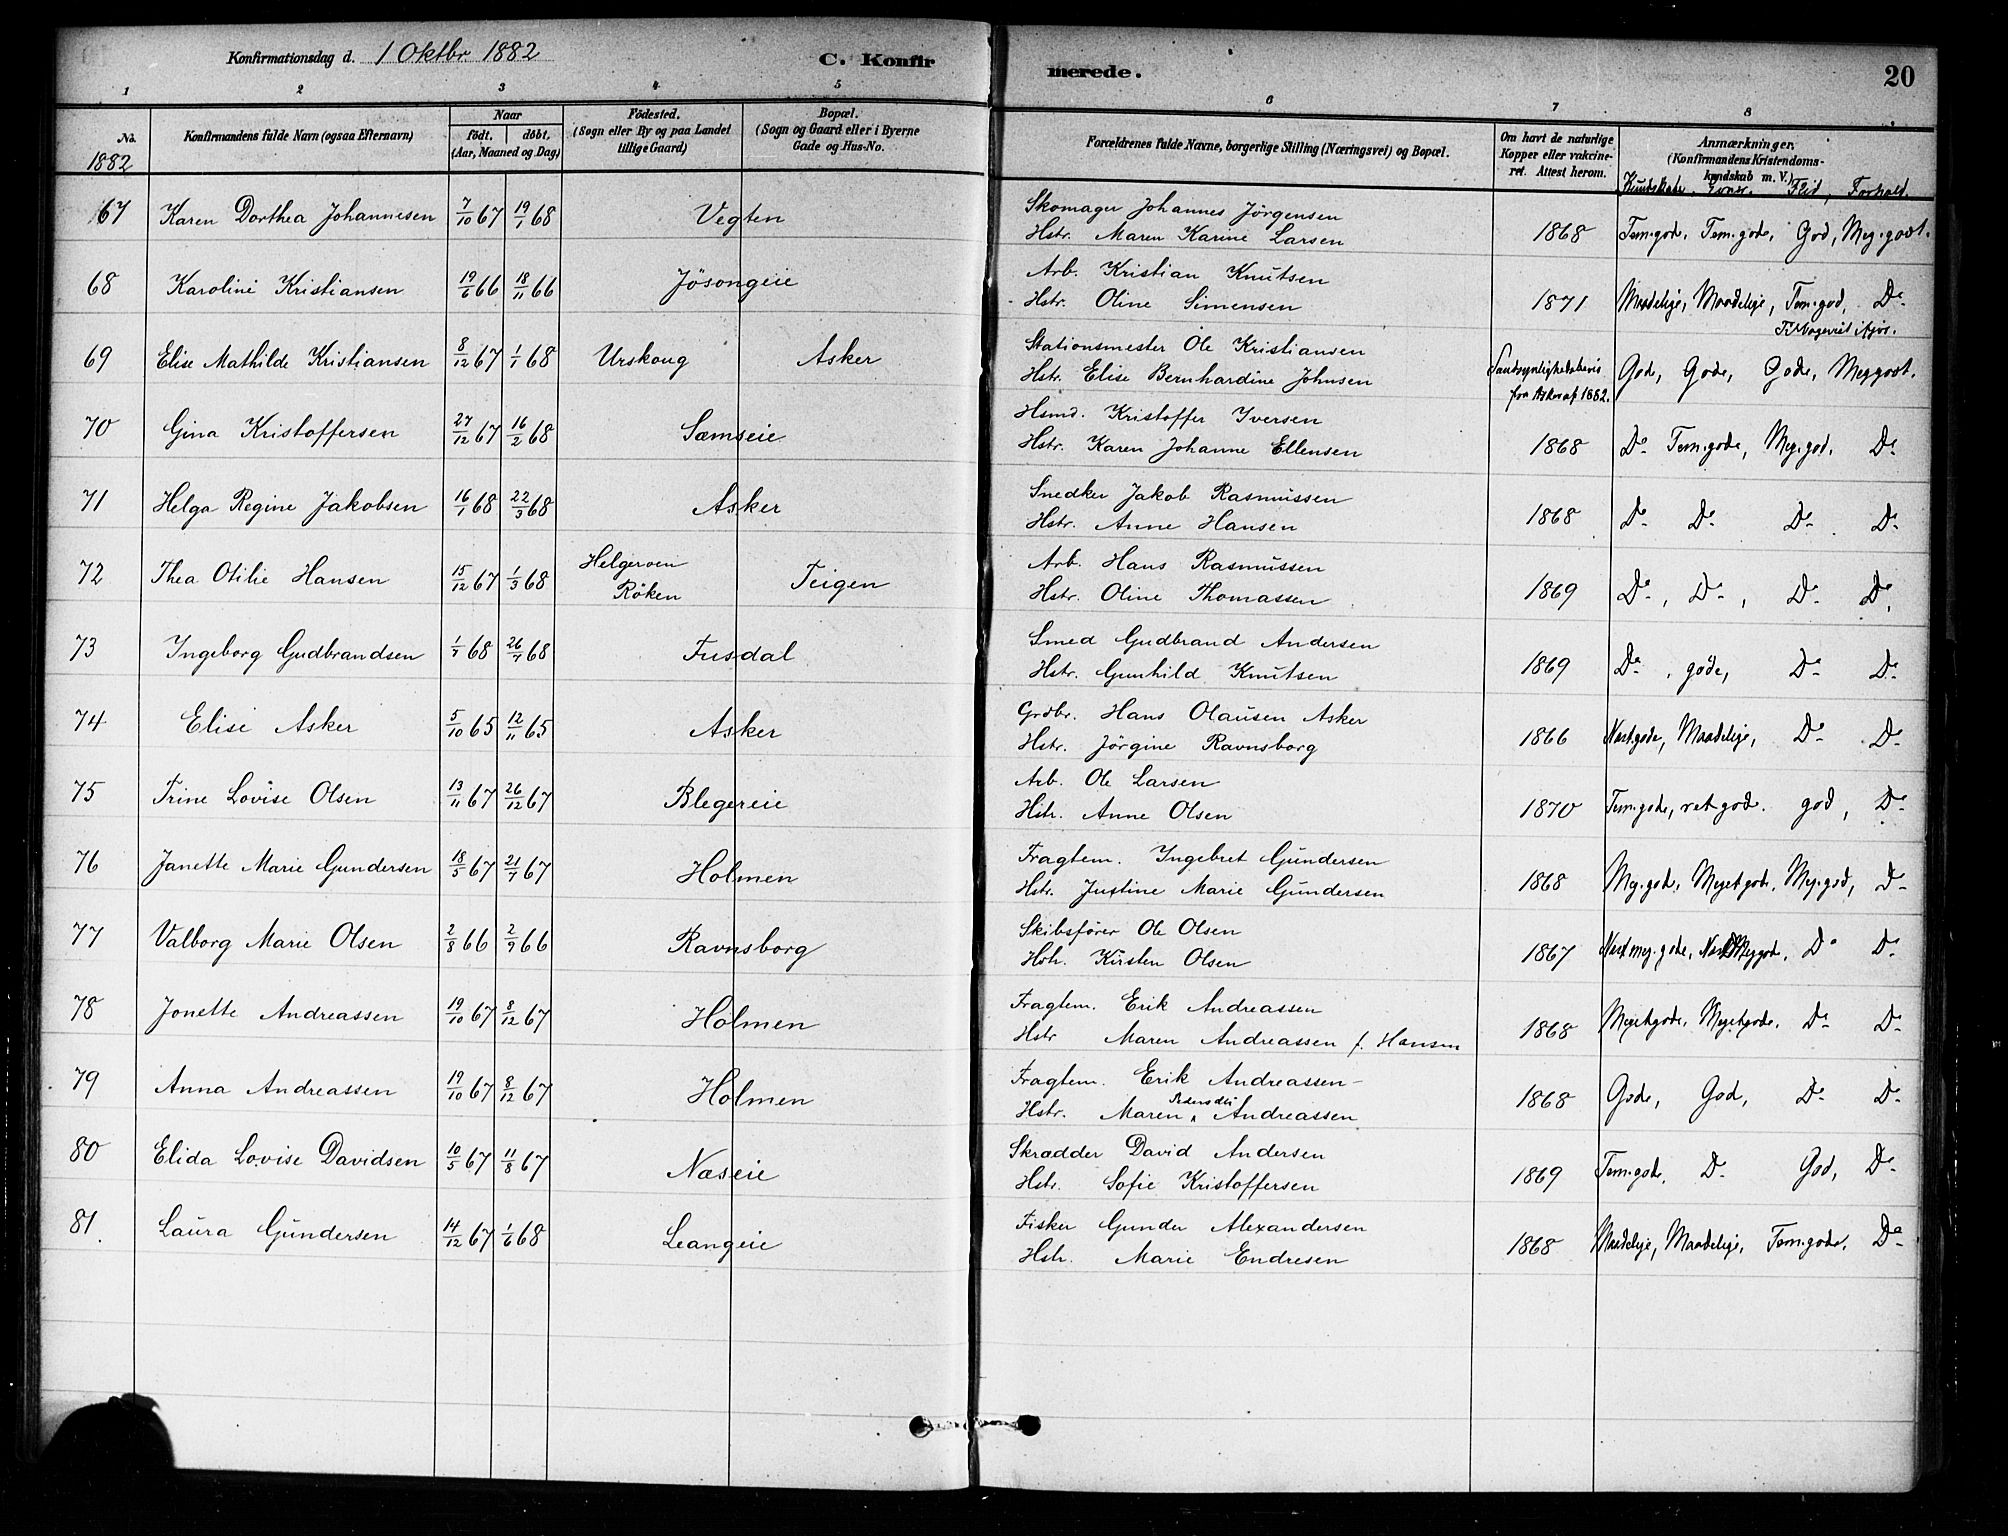 Konfirmationsdag d. 1 Oktbr. 1882 C. Konfir merede. 20
1 2 3 4 5 6 7 8
No. Konfirmandens fulde Navn (ogsaa Efternavn) Naar født. døbt. (Aar, Maaned og Dag) Fødested. (Sogn eller By og paa Landet tillige Gaard) Bopæl. (Sogn og Gaard eller i Byerne Gade og Hus-No. Forældrenes fulde Navne, borgerlige Stilling (Næringsvei) og Bopæl. Om havt de naturlige Kopper eller vakcineret. Attest herom. Anmærkninger. (Konfirmandens Kristendomskundskab m. V.)
1882 Kundskab, Flid, Forhold.
67 Karen Dorthea Johannesen 7/10 67 19/1 68 Vegten Skomager Johannes Jörgensen
Hstr. Maren Karine Larsen 1868 Tem. gode, Tem. gode, God, Meg. godt.
68 Karoline Kristiansen 19/6 66 18/11 66 Jösongeie Arb. Kristian Knutsen
Hstr. Oline Simensen 1871 Maadelige, Maadelige, Tem. god, Do
69 Elise Mathilde Kristiansen 8/12 67 1/1 68 Urskoug Asker Stationsmester Ole Kristiansen
Hstr. Elise Bernhardine Johnsen Sandsynlighedsbevis fra Asker 1882. Gode, Gode, Gode, Meg godt.
70 Gina Kristoffersen 27/12 67 16/2 68 Sæmseie Hsmd. Kristoffer Iversen
Hstr. Karen Johanne Ellensen 1868 Do Tem. gode, Meg. god. Do
71 Helga Regine Jakobsen 16/1 68 22/3 68 Asker Snedker Jakob Rasmussen
Hstr. Anne Hansen 1868 Do Do Do Do
72 Thea Otilie Hansen 15/12 67 1/3 68 Helgeroen Röken Teigen Arb. Hans Rasmussen
Hstr. Oline Thomassen 1869 Do, Do, Do Do
73 Ingeborg Gudbrandsen 68 26 68 Fusdal Smed Gudbrand Andersen
Hstr. Gunhild Knutsen 1869 Do, gode, Do Do
74 Elise Asker 5/10 65 12/11 65 Asker Grdbr. Hans Olausen Asker
Hstr. Jörgine Ravnsborg 1866 Næst gode, Maadelige, Do Do
75 Trine Lovise Olsen 13/11 67 26/12 67 Blegereie Arb. Ole Larsen
Hstr. Anne Olsen 1870 Tem. gode, ret god. god, Do
76 Janette Marie Gundersen 18/5 67 21/7 67 Holmen Fragtem. Ingebret Gundersen
Hstr. Justine Marie Gundersen 1868 Mg. god, Meget gode, Meg. god, Do
77 Valborg Marie Olsen 2/8 66 2/9 66 Ravnsborg Skibsfører Ole Olsen
Hstr. Kirsten Olsen 1867 Næst meg. gode, Meg gode, Do Do
78 Jonette Andreassen 19/10 67 8/12 67 Holmen Fragtem. Erik Andreassen
Hstr Maren Andreassen f. Hansen 1868 Meget gode, Meget gode. Do Do
79 Anna Andreassen 19/10 67 8/12 67 Holmen Fragtem. Erik Andreassen
Hstr. Maren Andreassen 1868 Gode, God, Do Do
80 Elida Lovise Davidsen 10/5 67 11/8 67 Næseie Skrædder David Andersen
Hstr. Sofie Kristoffersen 1869 Tem. gode. Do God, Do
81. Laura Gundersen 14/12 67 1/6 68 Leangeie Fisker Gunder Alexandersen
Hstr. Marie Endresen 1868 Maadelige, Maadelige, Tem. gode. Do